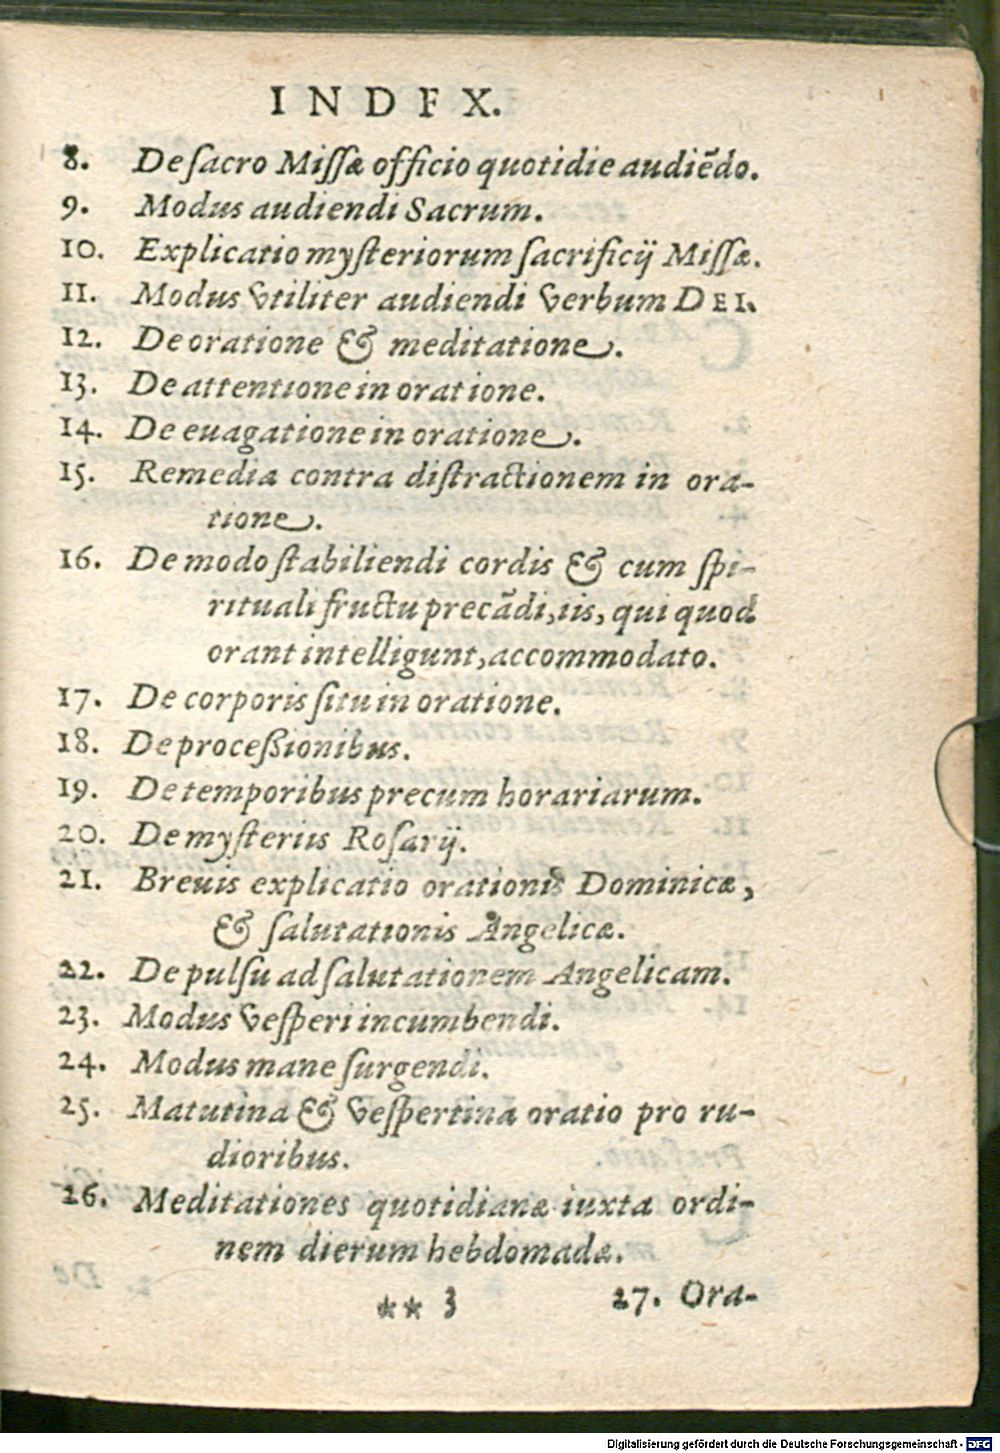 INDEX.
8. De ſacro Miſſæ officio quotidie audiẽdo.
9. Modus audiendi Sacrum.
10. Explicatio myſteriorum ſacrificij Miſſæ.
11. Modus vtiliter audiendi verbum DEI.
12. De oratione & meditatione.
13. De attentione in oratione.
14. De euagatione in oratione.
15. Remedia contra diſtractionem in ora-
tione.
16. De modo ſtabiliendi cordis & cum ſpi-
rituali fructu precãdi, iis, qui quod
orant intelligunt, accommodato.
17. De corporis ſitu in oratione.
18. De proceßionibus.
19. De temporibus precum horariarum.
20. De myſteriis Roſarij.
21. Breuis explicatio orationis Dominicæ,
& ſalutationis Angelicæ.
22. De pulſu ad ſalutationem Angelicam.
23. Modus veſperi incumbendi.
24. Modus mane ſurgendi.
25. Matutina & veſpertina oratio pro ru-
dioribus.
26. Meditationes quotidianæ iuxta ordi-
nem dierum hebdomadæ.
** 3 27. Ora-
Digitalisierung gefördert durch die Deutsche Forschungsgemeinschaft - DFG